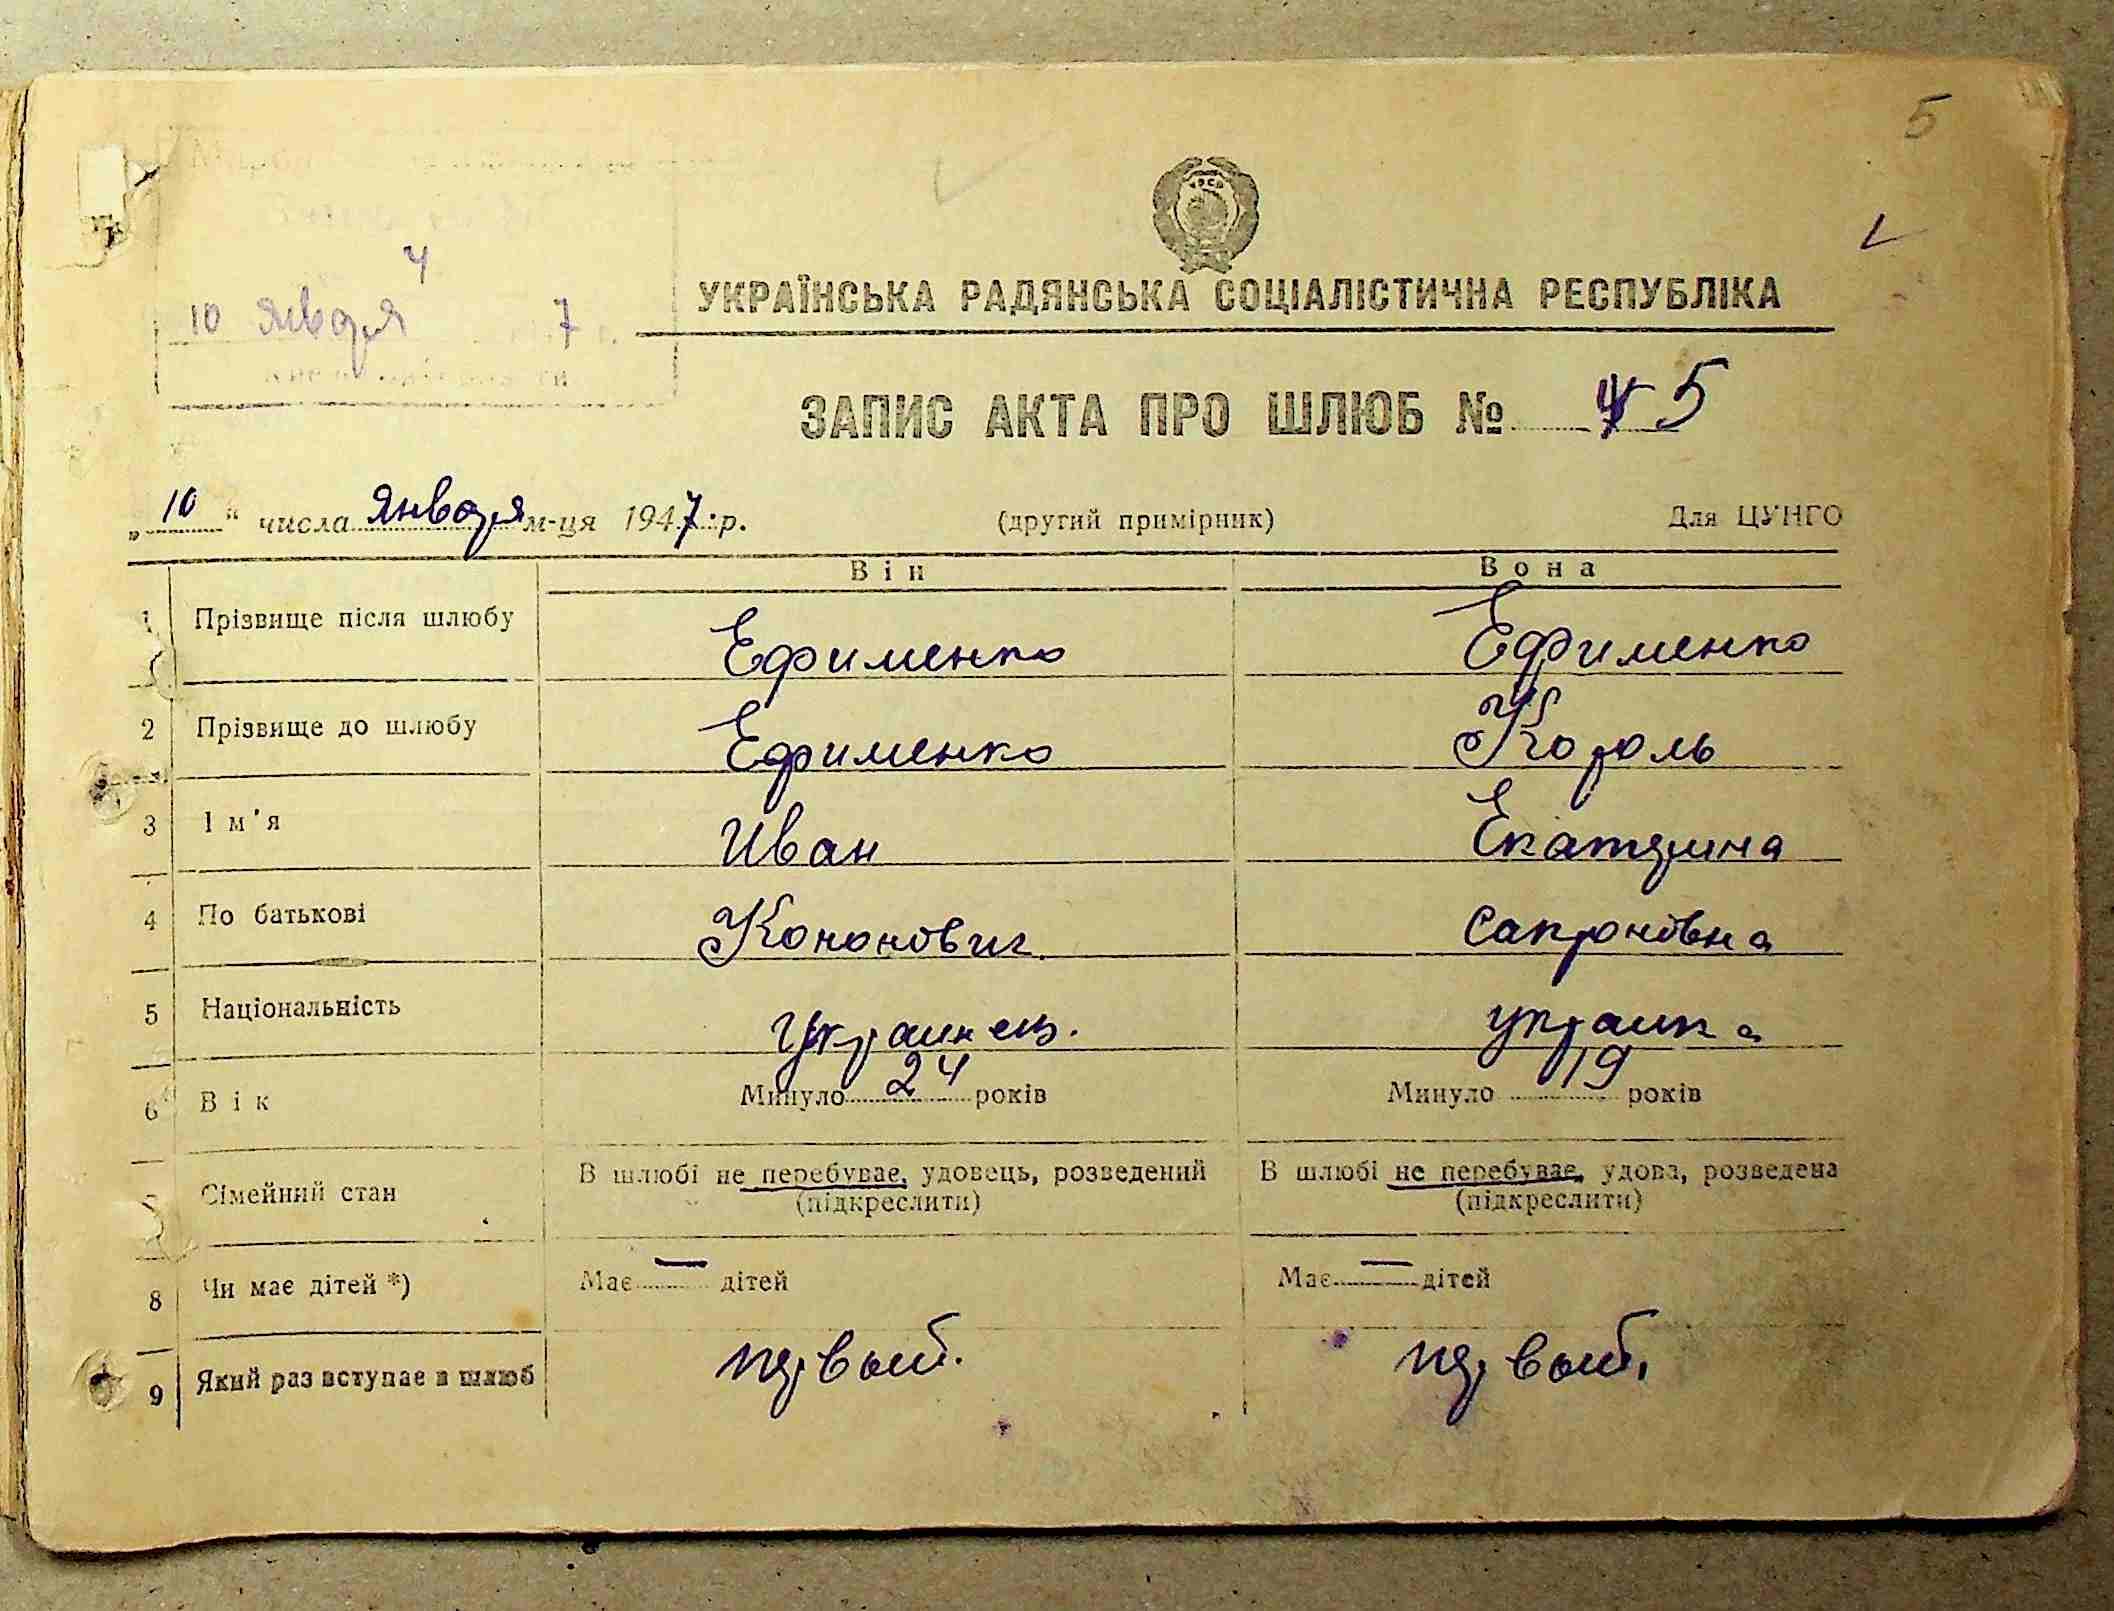 5
4
10 января 7 г.
УКРАЇНСЬКА РАДЯНСЬКА СОЦІАЛІСТИЧНА РЕСПУБЛІКА
ЗАПИС АКТА ПРО ШЛЮБ № 5
„ 10 " числа января м-ця 1947 р. (другий примірник) Для ЦУНГО
Він Вона
1 Прізвище після шлюбу Ефименко Ефименко
2 Прізвище до шлюбу Ефименко Король
3 Ім'я Иван Екатерина
4 По батькові Кононович Сапроновна
5 Національність Украинец. украинка
6 Вік Минуло 24 років Минуло 19 років
Сімейний стан В шлюбі не перебуває, удовець, розведений В шлюбі не перебуває, удова, розведена
(підкреслити) (підкреслити)
8 Чи має дітей *) Має — дітей Має — дітей
9 Який раз вступає в шлюб первый. первый.